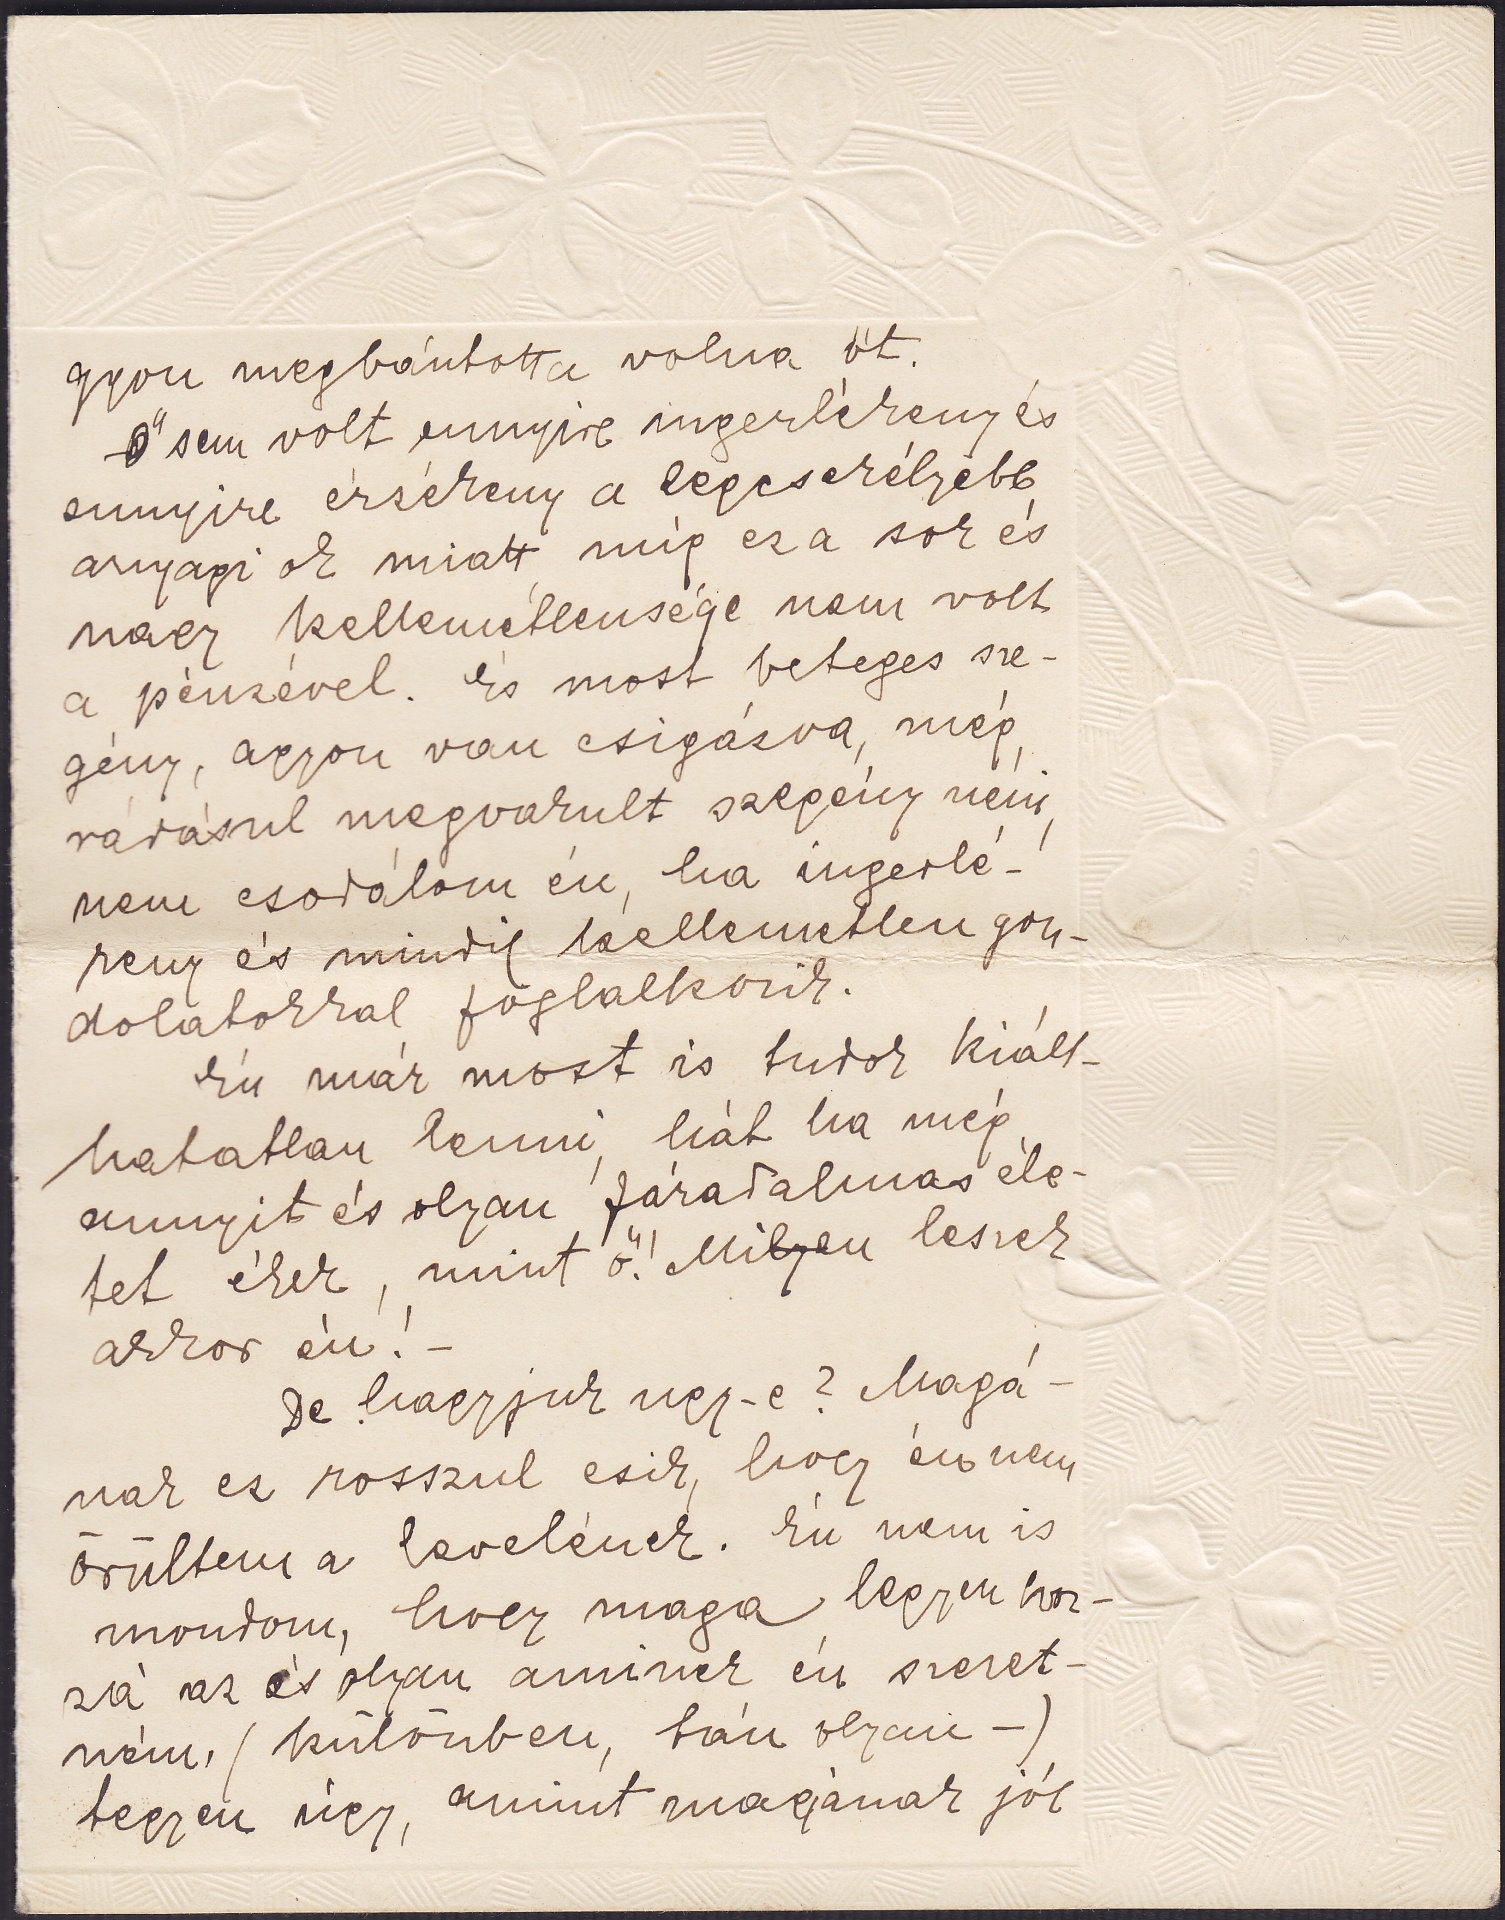 gyon megbántotta volna őt.
Ő sem volt ennyire ingerlékeny és
ennyire érzékeny a legcsekélyebb
anyagi ok miatt, míg ez a sok és
nagy kellemetlensége nem volt
a pénzével. És most beteges sze-
gény, agyon van csigázva, még
ráadásul megvakult szegény néni,
nem csodálom én, ha ingerlé-
keny és mindig kellemetlen gon-
dolatokkal foglalkozik.
Én már most is tudok kiáll-
hatatlan lenni, hát ha még
annyit és olyan fáradalmas éle-
tet élek, mint ő! Milyen leszek
akkor én! –
De hagyjuk ugy-e? Magá-
nak ez rosszul esik, hogy én nem
örültem a levelének. Én nem is
mondom, hogy maga legyen hoz-
zá az és olyan aminek én szeret-
ném, (különben, tán olyan –)
tegyen úgy, amint magának jól